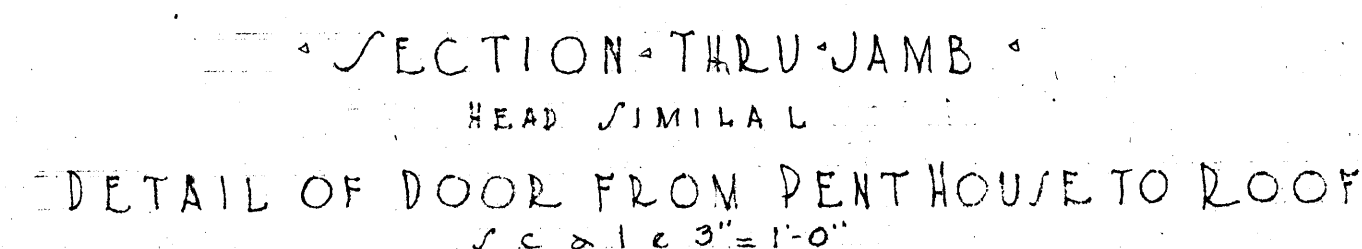 SECTION THRU JAMB
HEAD SIMILAR
DETAIL OF DOOR FROM PENT HOUSE TO ROOF
scale 3"=1'-0"